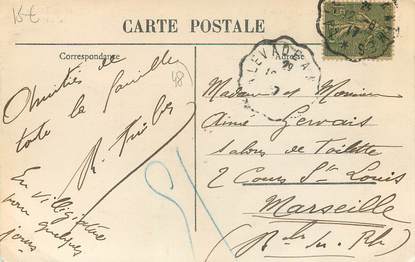 15€
CARTE POSTALE
Correspondance
Adresse
Amitiés de
toute la famille
48
En villégiature
pour quelques
jours
Madame et Monsieur
Aimé Gervais
Salons de Toilette
2 Cours St Louis
Marseille
(B. du Rh)